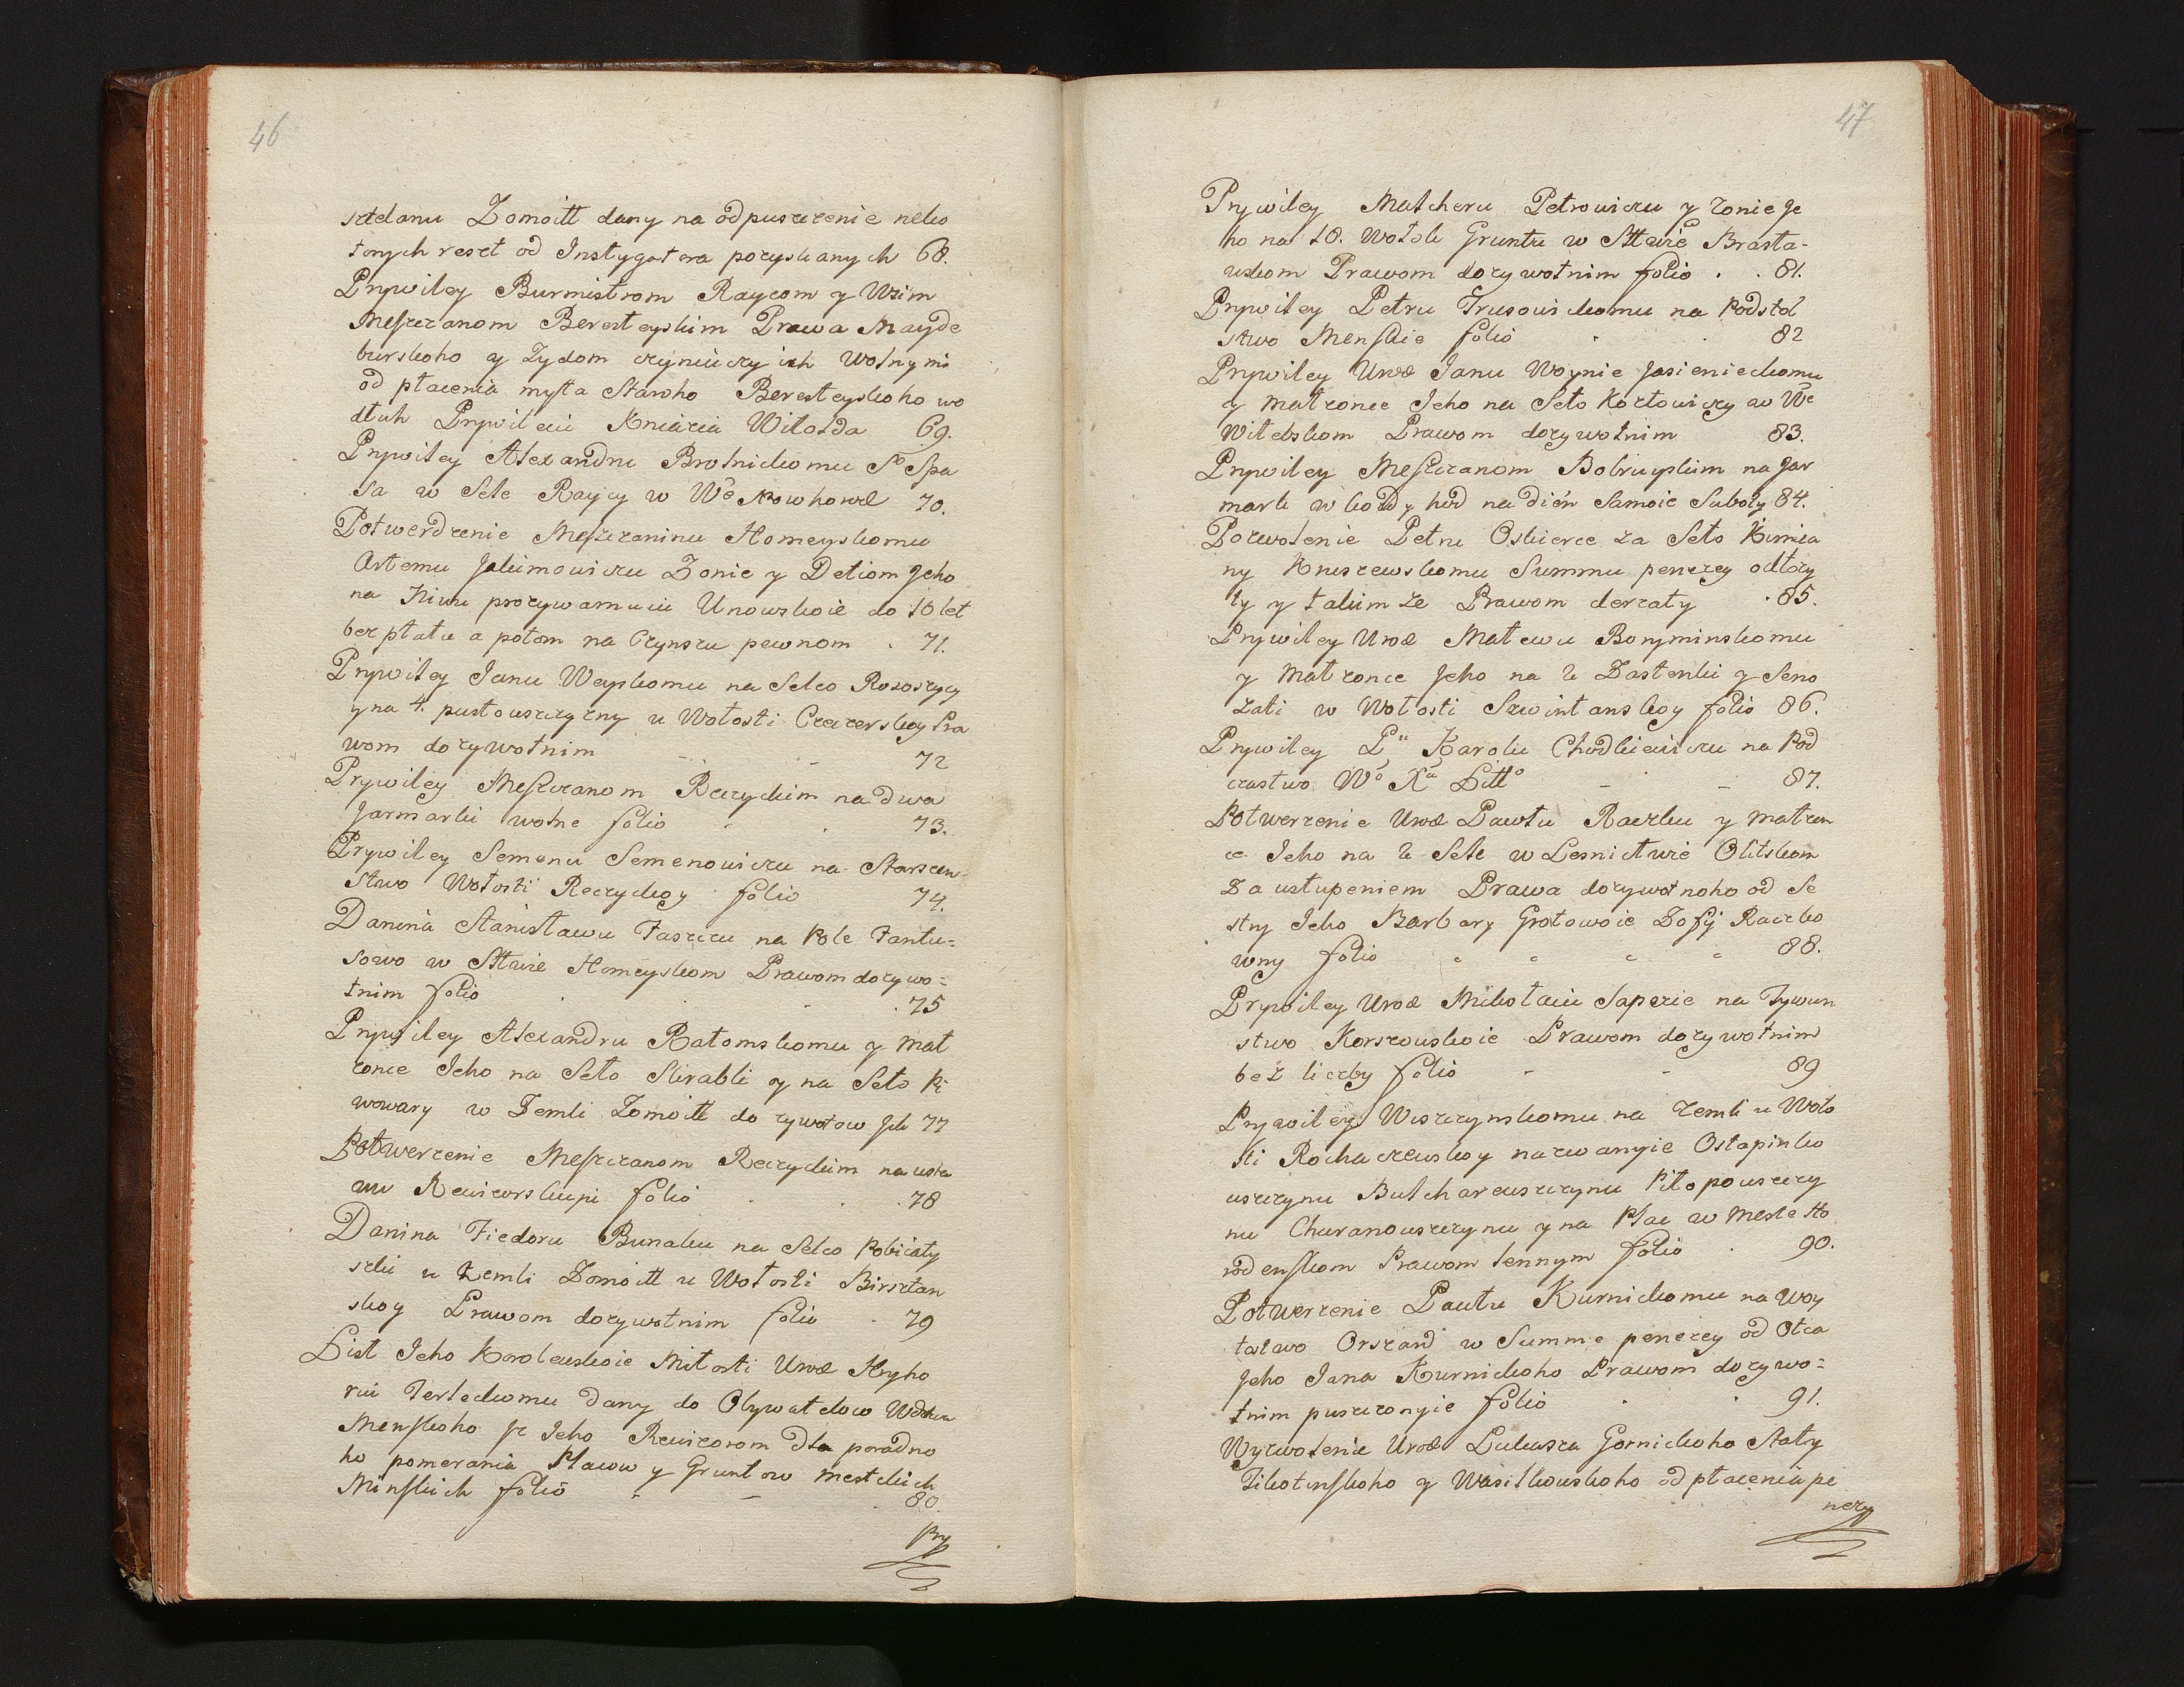 46
sztelanu Żomoitt dany na odpuszczenie neko
torych reszt od Instygatora pozyskanych 68.
Prywiley Burmistrom Raycom y Wsim
Mesczanom Beresteyskim Prawa Mayde
burskoho y Żydom czyniuczy ich Wolnymi
od płacenia myta Staroho Beresteyskoho wo
dłuh Prywileiu Kniazia Witolda 69.
Prywiley Alexandru Brolnickomu Spa
sa w Sele Raycy w Nowhorod 70.
Potwerdzenie Mesczaninu Homeyskomu
Artemu Jakimowiczu Żonie y Detiom Jeho
na Niwu prozywaemuiu Unowskoie do 10 let
bez płatu a potom na Czynszu pewnom . 71.
Prywiley Janu Wayskomu na Selco Rososzycy
y na 4. pustouszczyzny u Wołosti Czeczerskoy Pra
wom dożywotnim - - 72
Prywiley Mesczanom Reczyckim na dwa
Jarmarki wolne folio 73.
Prywiley Semenu Semenowiczu na Starszen-
stwo Wołosti Reczyckoy folio 74.
Danina Stanisławu Faszczu na Pole Fantu=
sowo w Sttwie Homeyskom Prawom dożywo=
tnim folio 75
Prywiley Alexandru Ratomskomu y Mał
żonce Jeho na Seło Skrabli y na Seło Pi
wowary w Zemli Żomoitt do żywotow Jch 77
Potwerżenie Mesczanom Reczyckim na usta
wu Rewizorskuju folio 78
Danina Fiedoru Bunaku na Selco Pobiały
szki u Zemli Żomoitt u Wołosti Birsztan
skoy Prawom dożywotnim folio 79
List Jeho Korolewskoie Miłosti Urod Hryho
riu Terleckomu dany do Obywatelow
Menskoho Jż Jeho Rewizorom dla poradno
ho pomerania Płacow y Gruntow mestckich
Minskich folio - - 80.
Pry
47
Prywiley Malcheru Petrowiczu y żonie Je
ho na 10. Wołok Gruntu w Sttwie Brasła-
wskom Prawom dożywotnim folio . . 81.
Prywiley Petru Trusowickomu na Podstol
stwo Menskie folio 82
Prywiley Urod Janu Woynie Jasienieckomu
y małżonce Jeho na Seło Kozłowiczy w
Witebskom Prawom dożywotnim 83.
Prywiley Mesczanom Bobruyskim na Jar
mark w kożdy hod na dień Samoie Suboty 84.
Pozwolenie Petru Oskierce za Seło Kimia
ny Kniszewskomu Summu penezey odłoży
ty y takim że Prawom derżaty . 85.
Prywiley Urod Matewu Boryminskomu
y małżonce Jeho na 2 Zastenki y Seno
żati w Wołosti Szwintanskoy folio 86.
Prywiley Karolu Chodkiewiczu na Pod
czastwo Litto - - 87.
Potwerżenie Urod Pawłu Raczku y małżon
ce Jeho na 2 Sele w Lesnictwie Olitskom
Za ustupeniem Prawa dożywotnoho od Se
stry Jeho Barbary Grotowoie Zofij Raczko
wny folio 88.
Prywiley Urod Mikołaiu Sapezie na Tywun
stwo Korszowskoie Prawom dożywotnim
bez liczby folio - - 89
Prywiley Wiszczynskomu na Zemli u Woło
sti Rochaczewskoy nazwanyie Ostapinko
uszczynu Bulcharauszczynu Piłopouszczy
nu Churanouszczynu y na Plac w Meste Ho
rodenskom Prawom lennym folio . 90.
Potwerżenie Pawłu Kurnickomu na Woy
tostwo Orszand w Summe penezey od Otca
Jeho Jana Kurnickoho Prawom dożywo=
tnim puszczonyie folio 91.
Wyzwolenie Urod Łukasza Gornickoho Stały
Tikotinskoho y Wasilkowskoho od płacenia pe
nezy